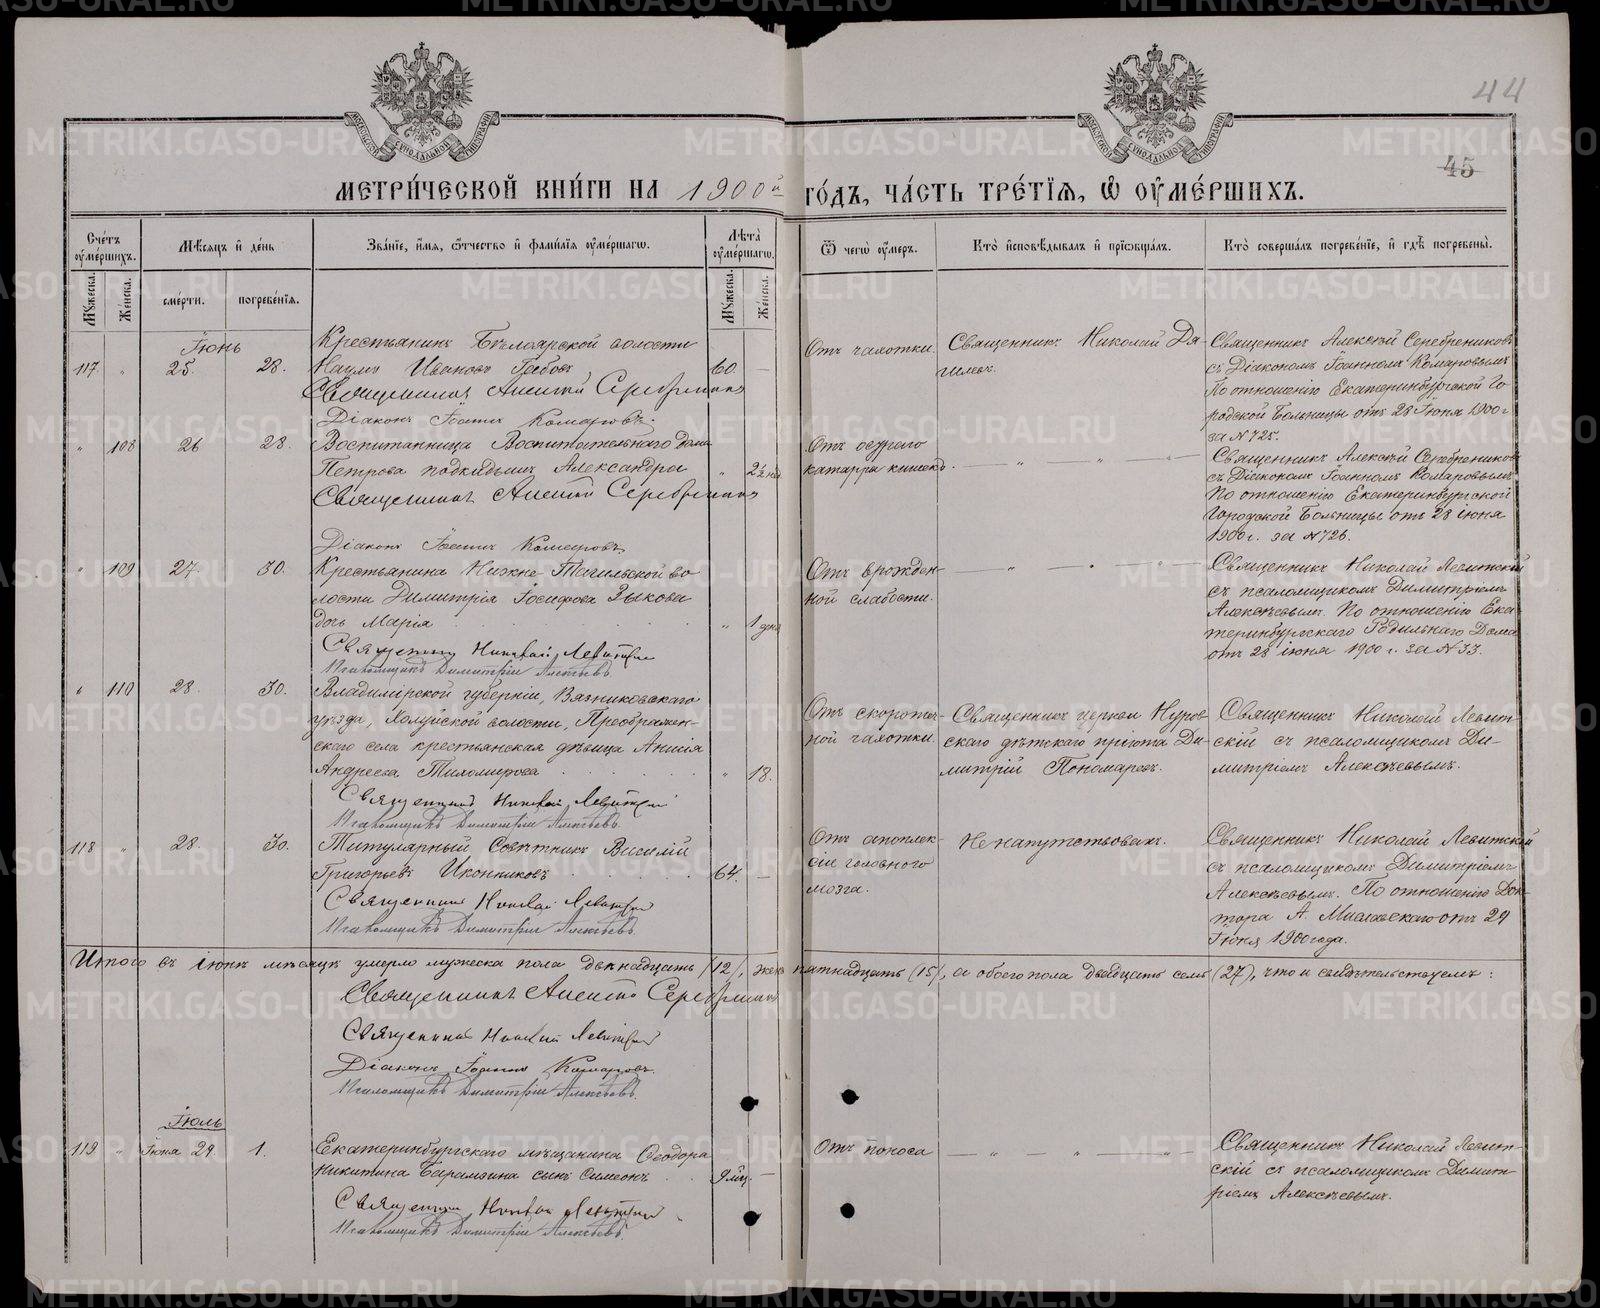 44
45
МЕТРИ́ЧЕСКОЙ КНИ́ГИ НА 1900й ГО́ДЪ, ЧА́СТЬ ТРЕ́ТІѦ, Ѽ ОУ҆МЕ́РШИХЪ.
Сче́тъ оу҆ме́ршихъ.
Мꙋ́жеска.
Же́нска.
Мѣ́сѧцъ и҆ де́нь
сме́рти.
погребе́нїѧ.
Зва́нїе, и҆́мѧ, ѻ҆́тчество и҆ фами́лїѧ оу҆ме́ршагѡ.
Лѣ́та оу҆ме́ршагѡ.
Мꙋ́жеска.
Же́нска.
Ѿ чегѡ̀ оу҆́меръ.
Кто̀ и҆сповѣ́дывалъ и҆ прїѡбща́лъ.
Кто̀ соверша́лъ погребе́нїе, и҆ гдѣ̀ погребены̀.
Іюнь
117 " 25. 28.
Крестьянинъ Бѣлоярской волости
Наумъ Ивановъ Грабовъ 60. —
Священникъ Алексій Серебренниковъ
Діаконъ Іоаннъ Комаровъ.
Отъ чахотки.
Священникъ Николай Дя-
гилевъ.
Священникъ Алексѣй Серебрениковъ
съ Діакономъ Іоанномъ Комаровымъ
По отношенію Екатеринбургской Го-
родской Больницы отъ 28 Іюня 1900 г.
за № 725.
" 108 26 28.
Воспитанница Воспитательнаго дома
Петрова подкидышъ Александра " 2½ нед.
Священникъ Алексій Серебренниковъ
Діаконъ Іоаннъ Комаровъ.
Отъ остраго
катарра кишекъ.
— " " " —
Священникъ Алексѣй Серебрениковъ
съ Діакономъ Іоанномъ Комаровымъ.
По отношенію Екатеринбургской
Городской Больницы отъ 28 іюня
1900 г. за № 726.
" 109 27. 30.
Крестьянина Нижне-Тагильской во
лости Димитрія Іосифова Зыкова
дочь Марія " 1 дня
Священникъ Николай Левитскій
Псаломщикъ Димитрій Алексѣевъ.
Отъ врожден-
ной слабости.
— " " " —
Священникъ Николай Левитскій
съ псаломщикомъ Димитріемъ
Алексѣевымъ. По отношенію Ека-
теринбургскаго Родильнаго Дома
отъ 28 іюня 1900 г. за № 33.
" 110 28. 30.
Владимірской губерніи, Вязниковскаго
уѣзда, Холуйской волости, Преображен-
скаго села крестьянская дѣвица Анисія
Андреева Тихомирова " 18.
Священникъ Николай Левитскій
Псаломщикъ Димитрій Алексѣевъ.
Отъ скоротеч-
ной чахотки.
Священникъ церкви Нуров-
скаго дѣтскаго пріюта Ди-
митрій Пономаревъ.
Священникъ Николай Левит-
скій съ псаломщикомъ Ди-
митріемъ Алексѣевымъ.
118 " 28. 30.
Титулярный Совѣтникъ Василій
Григорьевъ Иконниковъ 64. —
Священникъ Николай Левитскій
Псаломщикъ Димитрій Алексѣевъ
Отъ апоплек-
сіи головного
мозга.
Не напутствованъ.
Священникъ Николай Левитскій
съ псаломщикомъ Димитріемъ
Алексѣевымъ. По отношенію Док-
тора А. Миславскаго отъ 29
Іюня 1900 года.
Итого въ іюнѣ мѣсяцѣ умерло мужеска пола двѣнадцать (12), женска пятнадцать (15), а обоего пола двадцать семь (27), что и свидѣтельствуемъ:
Священникъ Алексій Серебренниковъ
Священникъ Николай Левитскій
Діаконъ Іоаннъ Комаровъ.
Псаломщикъ Димитрій Алексѣевъ.
Іюль
119 " Іюня 29 1.
Екатеринбургскаго мѣщанина Ѳеодора
Никитина Барамзина сынъ Симеонъ 9 мѣс. —
Священникъ Николай Левитскій
Псаломщикъ Димитрій Алексѣевъ.
Отъ поноса
— " — " —
Священникъ Николай Левит-
скій съ псаломщикомъ Димит-
ріемъ Алексѣевымъ.
METRIKI.GASO-URAL.RU